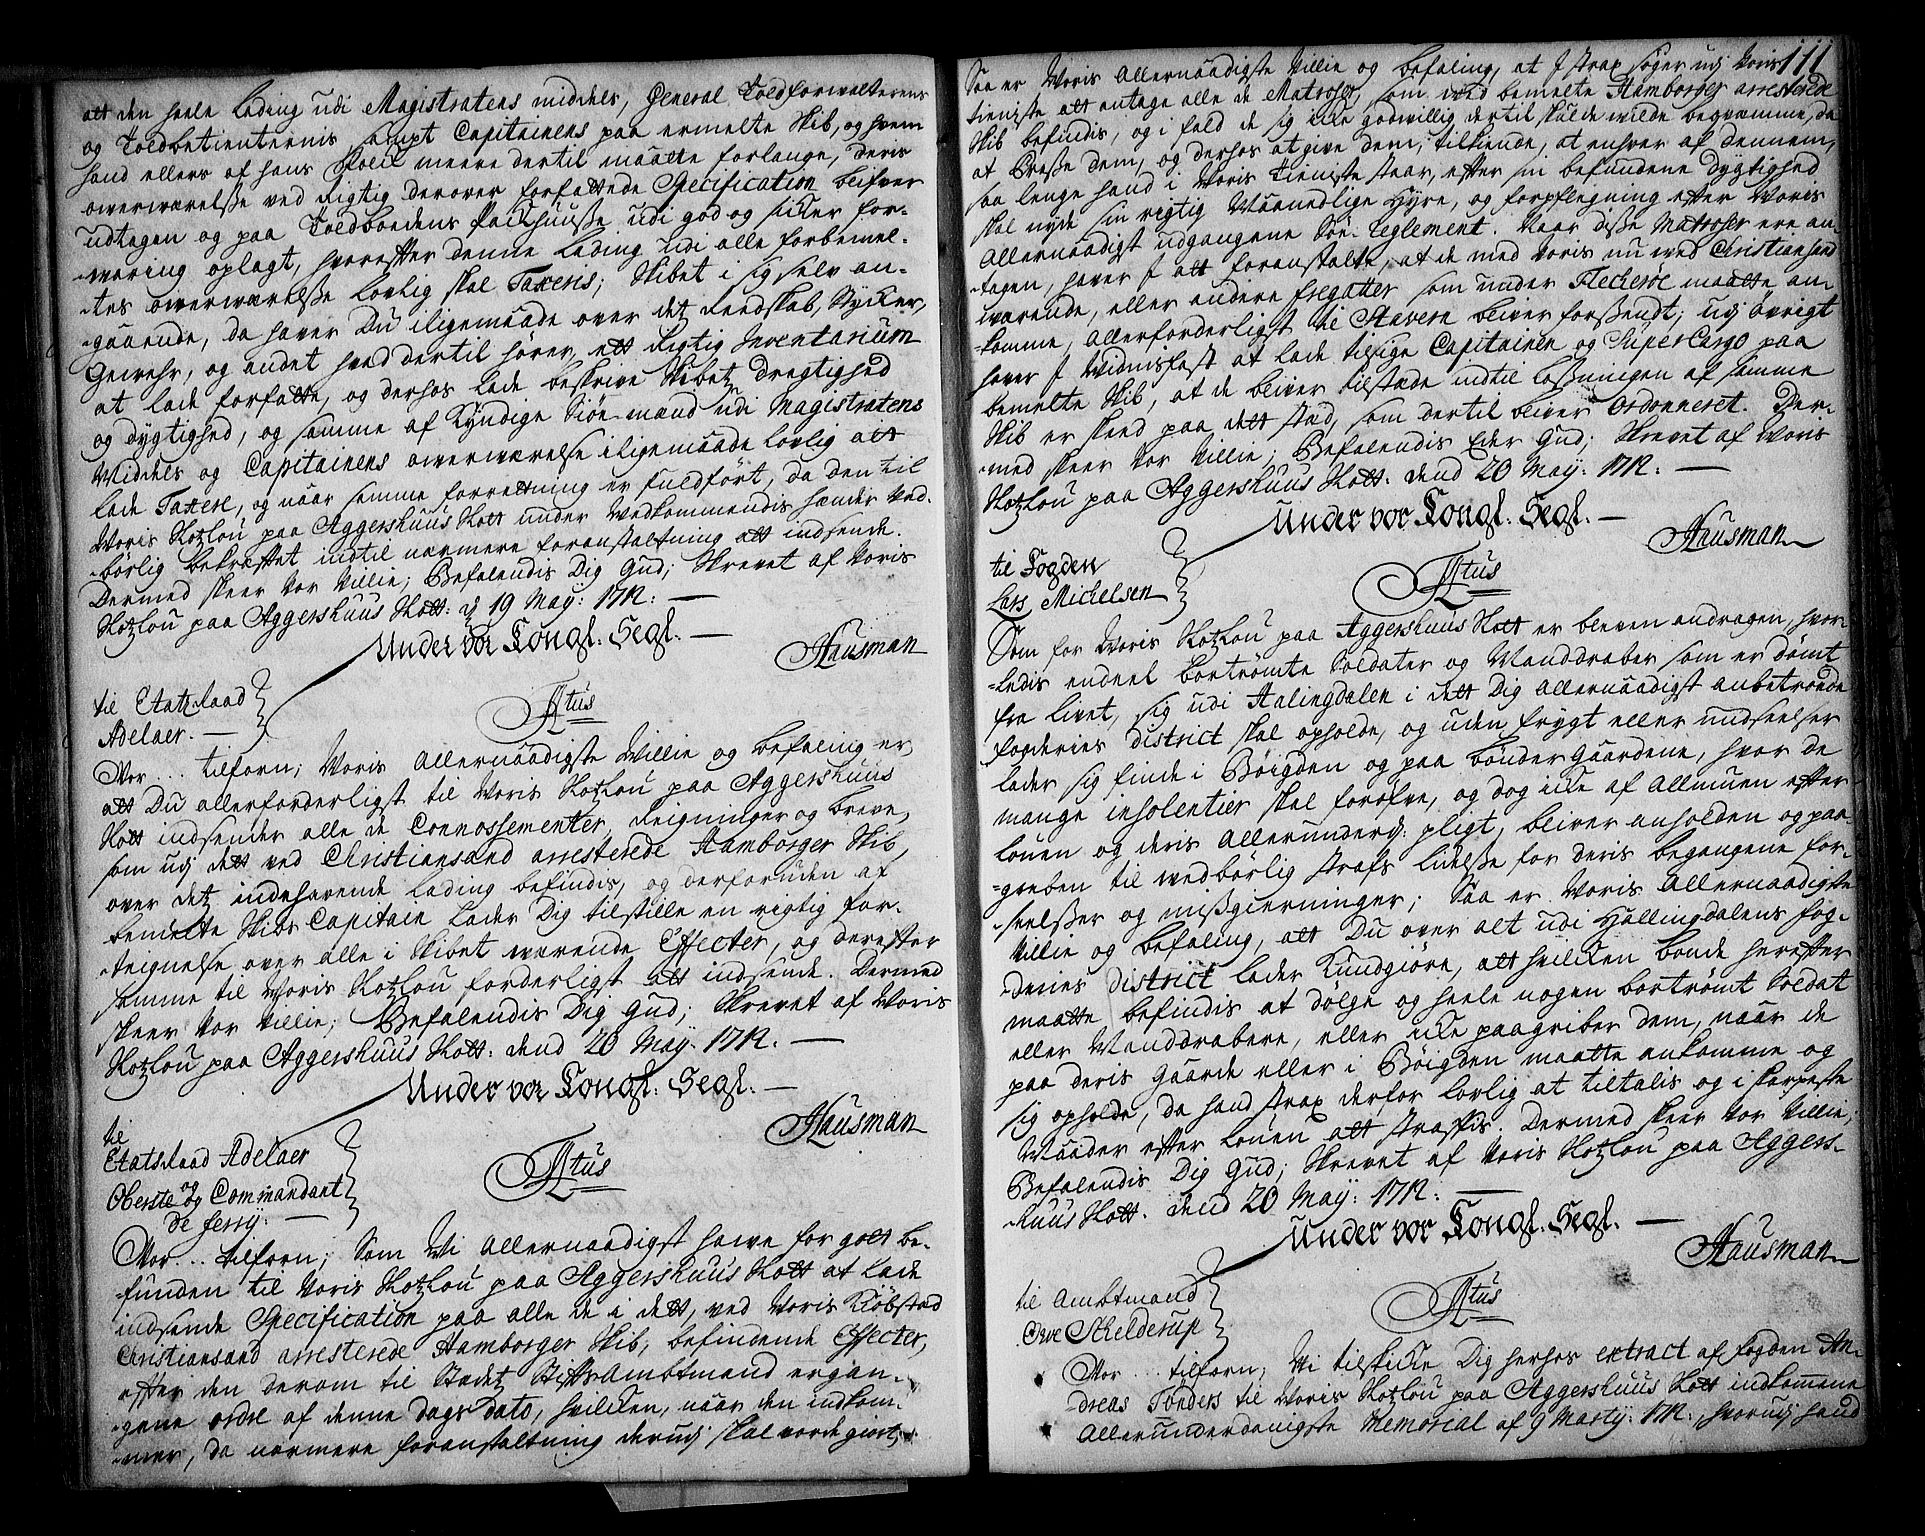 att den heele Lading udi Magistratens middels, General Toldforwalterens
og Toldbetienternis sampt Capitainens paa ermelte Skib, og hvem
hand ellers af hans Folck meere dertil maatte forlange, deris
overwærelse ved Rigtig derover forfattede Specification blifver
udtagen og paa Toldboedens Packhuuse udi god og sicker for-
-waring oplagt, hvorefter denne Lading udi alle forbemel-
-tes overwærelse lovlig skal Taxeris; Skibet i sig selv an-
-gaaende, da haver Du iligemaade over det Redskab, Stycker,
Gewehr, og andet hved dertil hører, ett Rigtig Inventarium
at lade forfatte, og derhos lade beskrive Skibetz Dregtighed
og dygtighed, og samme af Kyndige Siøe-mænd udi Magistratens
Middels og Capitainens overwærelse iligemaade lovlig att
lade Taxere, og naar samme forretning er fuldført, da den til
Voris Slotzlou paa Aggershuus Slott under Vedkommendis hænder ved-
-børlig bekreftet indtil nærmere foranstaltning att indsende.
Dermed skeer Vor Villie; Befalendis Dig Gud; Skrevet af Voris
Slotzlou paa Aggershuus Slott: d 19 Maÿ: 1712. —
Under vor Kongl: Segl. —
Hausman
til Etatz Raad
Adelaer. —
PStus
Vor ... tilforn; Voris Allernaadigste Villie og befaling er
att Du allerforderligst til Voris Slotzlou paa Aggershuus
Slott indsender alle de Connossementer, Reigninger og breve,
som udj dett ved Christiansand arresterede Hamborger Skib,
over detz indehavende Lading befindis, og derforuden af
bemelte Skibs Capitain Lader Dig tilstille en rigtig for-
-teignelse over alle i Skibet wærende Effecter, og derefter
samme til Voris Slotzlou forderligst att indsende. Dermed
skeer Vor Villie; Befalendis Dig Gud; Skrevet af Voris
Slotzlou paa Aggershuus Slott: dend 20 Maÿ: 1712. —
Under vor Kongl: Segl. —
Hausman
til
Etatsraad Adelaer
Oberste og Commandant
de Ferrÿ: —
Vor ... tilforn; Som Vi Allernaadigst hawe for gott be-
-funden til Voris Slotzlou paa Aggershuus Slott at lade
indsende Specification paa alle de i dett, ved Voris Kiøbstad
Christiansand arresterede Hamborger Skib, befindende Effecter,
efter den derom til Stedetz StiftsAmbtmand ergan-
-gene ordre af denne dags dato, hvilken, naar den indkom-
-mer, da nærmere foranstaltning derudj skal vorde giort;
111
Saa er Voris Allernaadigste Villie og befaling, at I strax søger udj Voris
tieniste att antage alle de Matroser, som ved bemelte Hamborger arresterede
Skib befindis, og i fald de sig icke godwillig dertil skulde wilde beqvemme, da
at Presse dem, og derhos at give dem, tilkiende, at enhver af dennem,
saa lenge hand i Voris Tieniste staar, efter sin befundene Dygtighed
skal nyde sin rigtig Maanedlige Hyre, og forpflegning efter Voris
Allernaadigst udgangene Søe-Reglement. Naar disse Matroser ere an-
-tagen, haver I att foranstalte, at de med Voris nu ved Christiansand
wærende, eller andere fregatter som under Fleckerøe maatte an-
-komme, Allerforderligst til Stavern bliver forsendt; udj øvrigt
haver I Widnisfast at lade tilsige Capitainen og SuperCargo paa
bemelte Skib, at de bliver tilstæde indtil lossningen af samme
Skib er skeed paa dett sted, som dertil bliver Ordonneret. Der-
-med skeer Vor Villie; Befalendis Eder Gud; Skrevet af Voris
Slotzlou paa Aggershuus Slott: dend 20 Maÿ: 1712. —
Under vor Kongl: Segl. —
Hausman
til Fogden
Lars Michelsen
Som for Voris Slotzlou paa Aggershuus Slott er bleven andragen, hvor-
-ledis endeel bortrømte Soldater og Manddraber som er dømt
fra livet, sig udi Halingdalen i dett Dig Allernaadigst anbetroede
fogderies district skal opholde, og uden frygt eller undseelser
lader sig finde i Bøigden og paa bønder Gaardene, hvor de
mange insolentier skal forøfve, og dog icke af Allmuen efter
louen og deris Allerunderd: pligt, bliver anholden og paa-
-greben til wedbørlig strafs lidelse for deris begangene for-
-seelser og missgierninger; Saa er Voris Allernaadigste
Villie og befaling, att Du over alt udi Hallingdalens fog-
-deries District lader Kundgiøre, att hvilken bonde herefter
maatte befindis at dølge og heele nogen bortrømt Soldat
eller Manddrabere, eller icke paagriber dem, naar de
paa deris Gaarde eller i Bøigden maatte ankomme og
sig opholde, da hand strax derfor lovlig at tiltalis og i skarpeste
Maader efter Louen att straffis. Dermed skeer Vor Villie;
Befalendis Dig Gud; Skrevet af Voris Slotzlou paa Aggers-
-huus Slott. dend 20 Maÿ: 1712: —
Under vor Kongl: Segl. —
Hausman
til Ambtmand
Ove Schelderup
Vor ... tilforn; Vi tilskicke Dig herhos extract af fogden An-
-dreas Tønders til Voris Slotzlou paa Aggershuus Slott indkomene
Allerunderdanigste Memorial af 9 Martij: 1712: hvorudj hand